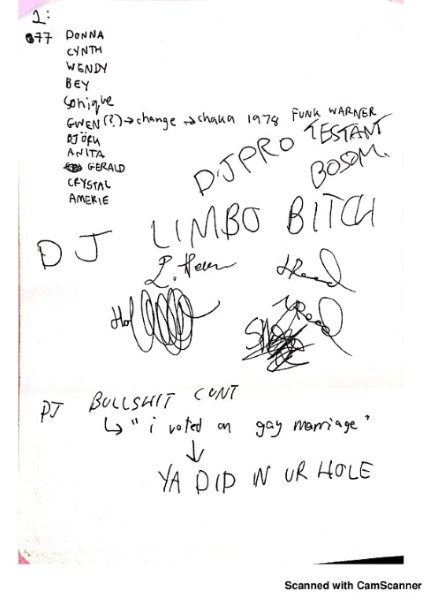 1:
077 DONNA
CYNTH
WENDY
BEY
Sonique
GWEN (?) → change → chaka 1978 FUNK WARNER
BJÖRK
ANITA
GERALD
CRYSTAL
AMERIE
DJ PRO TESTANT
BOSOM
DJ LIMBO BITCH
DJ BULLSHIT CUNT
↳ "i voted on gay marriage"
↓
YA DID IN UR HOLE
Scanned with CamScanner